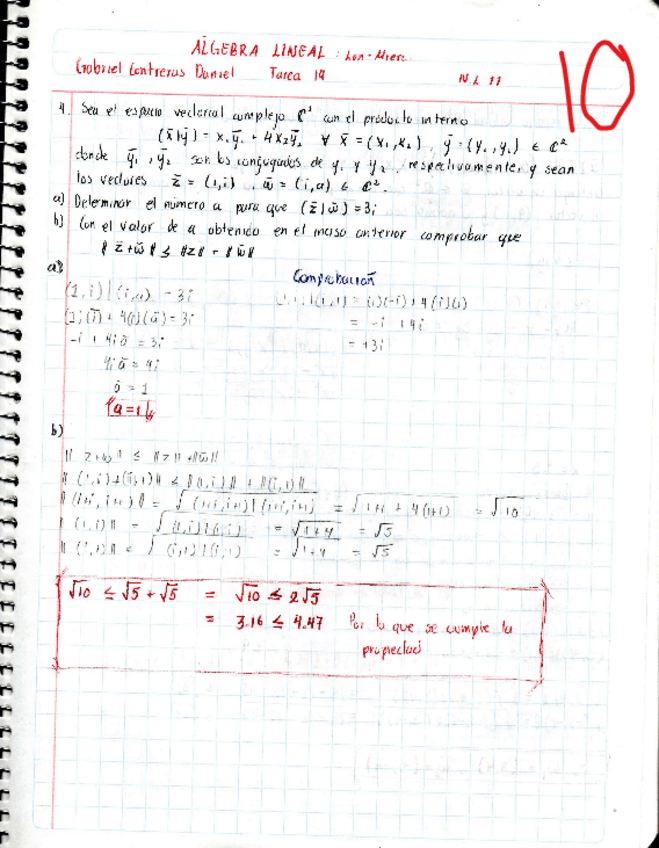 ALGEBRA LINEAL : Lun-Mierc.
10
Gabriel Contreras Daniel Tarea 19 N.L 11
4. Sea el espacio vectorial complejo ℂ² con el producto interno
(x̄|ȳ) = x₁ȳ₁ + 4x₂ȳ₂ ∀ x̄ = (x₁,x₂), ȳ = (y₁,y₂) ∈ ℂ²
donde ȳ₁, ȳ₂ son los conjugados de y₁ y y₂, respectivamente, y sean
los vectores z̄ = (1,i), w̄ = (i,a) ∈ ℂ².
a) Determinar el número a para que (z̄|w̄) = 3i
b) Con el valor de a obtenido en el inciso anterior comprobar que
‖z̄+w̄‖ ≤ ‖z‖ + ‖w̄‖
a)
Comprobación
(1,i)|(i,a) = 3i
= (1)(-i) + 4(i)(1)
(1)(ī) + 4(i)(ā) = 3i
= -i + 4i
-i + 4iā = 3i
= +3i
4iā = 4i
ā = 1
a=1
b)
‖z+w‖ ≤ ‖z‖ + ‖w̄‖
‖(1,i)+(i,1)‖ ≤ ‖(1,i)‖ + ‖(i,1)‖
‖(1+i, i+1)‖ = √(1+i,i+1)|(1+i,i+1) = √1+1 + 4(1+1) = √10
‖(1,i)‖ = √(1,i)|(1,i) = √1+4 = √5
‖(i,1)‖ = √(i,1)|(i,1) = √1+4 = √5
√10 ≤ √5 + √5 = √10 ≤ 2√5
= 3.16 ≤ 4.47 Por lo que se cumple la
propiedad